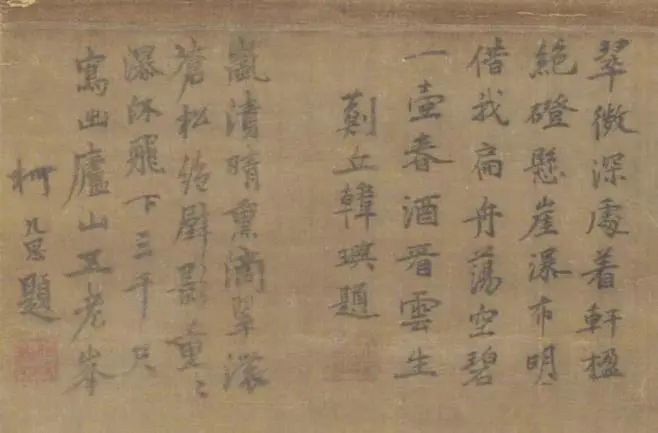 翠微深處着軒楹
絕磴懸崖瀑布明
借我扁舟蕩空碧
一壺春酒看雲生
薊丘韓璵題
嵐漬晴熏滴翠濃
蒼松絕壁影重〻
瀑流飛下三千尺
寫出廬山五老峯
柯九思題